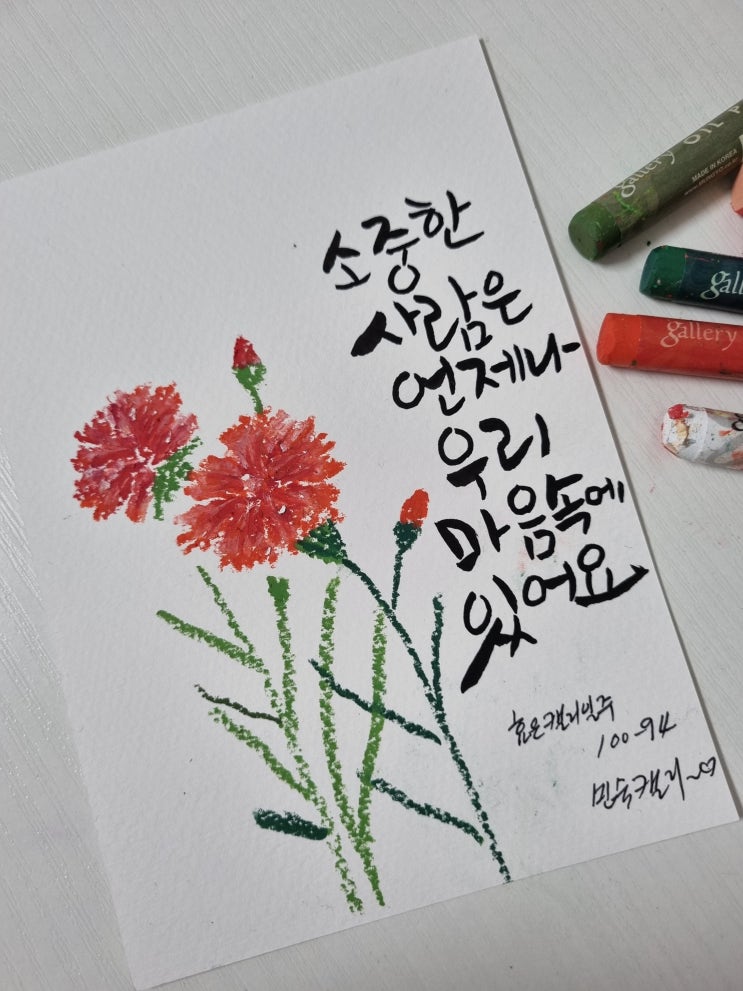 소중한
사람은
언제나
우리
마음속에
있어요
효은캘리일주
100-94
민숙캘리~♡
gallery OIL
MADE IN KOREA
gall
gallery